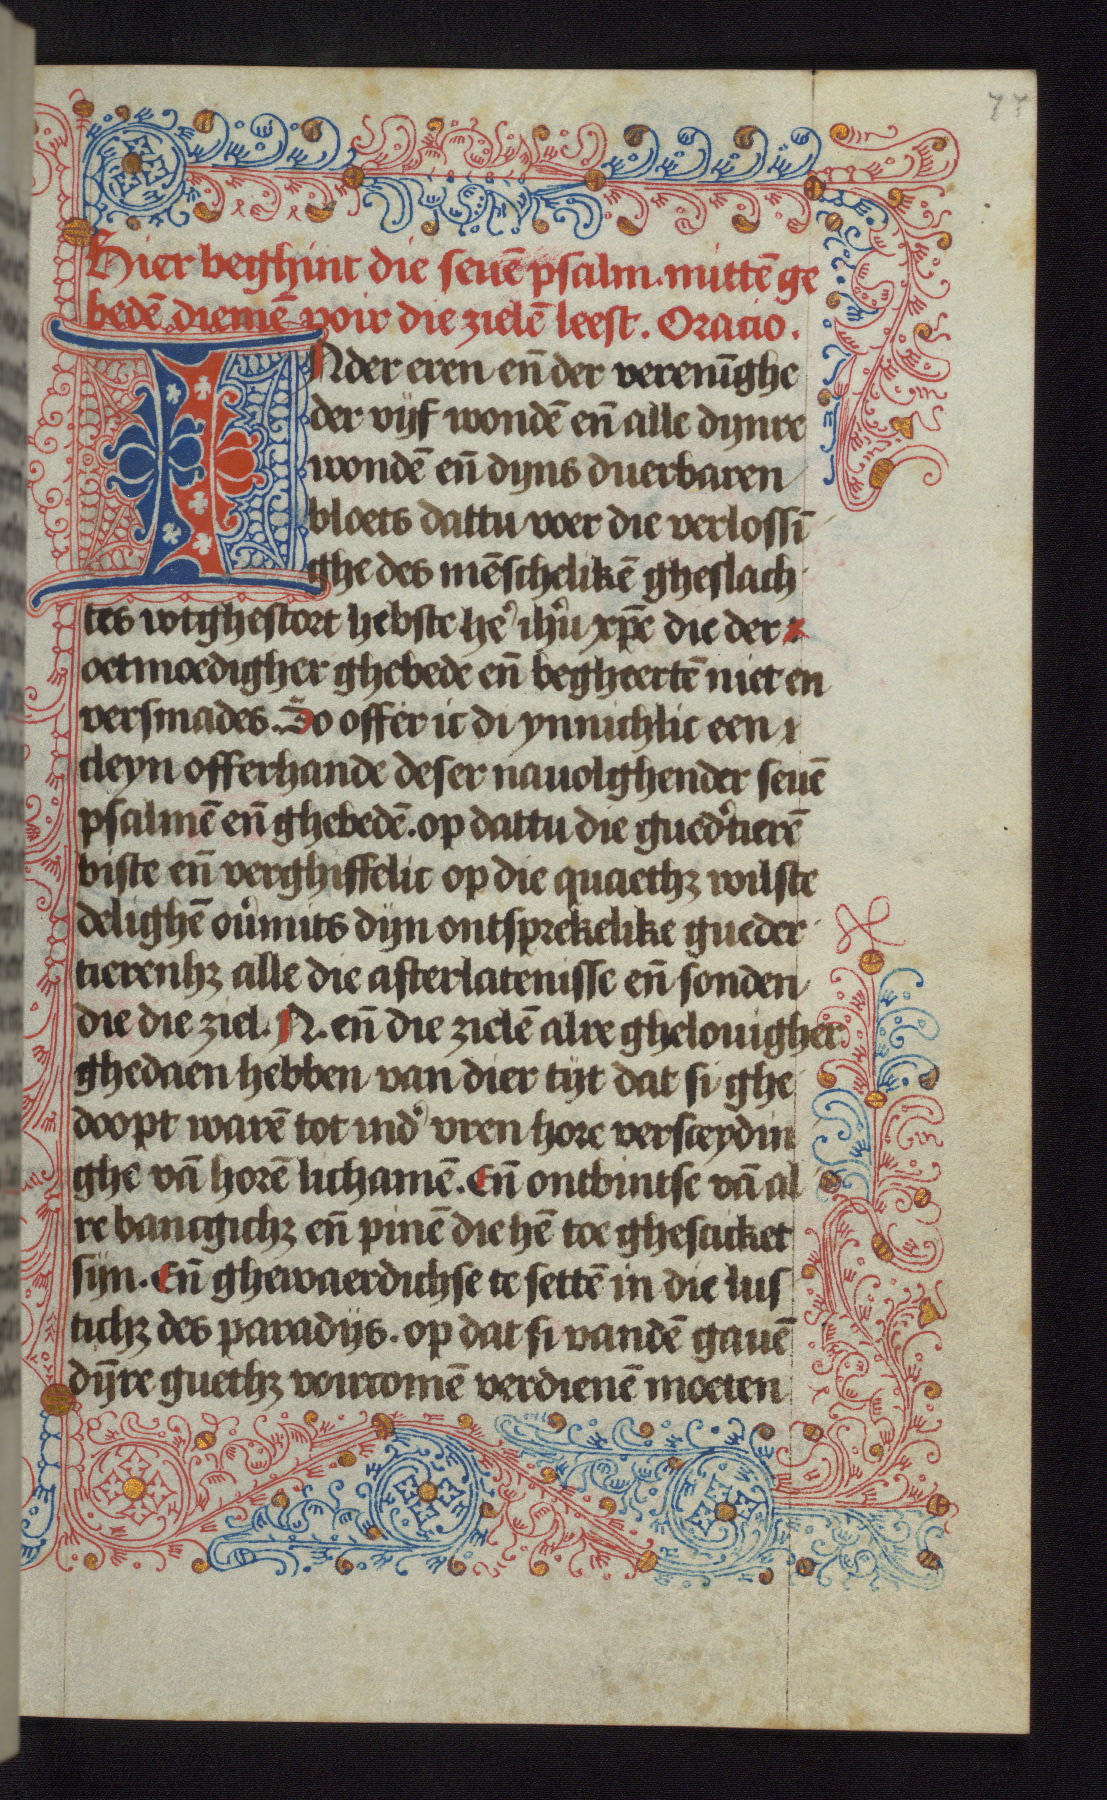 77
Hier beghint die seuē psalm. mittē ge
bedē. diemē voir die zielē leest. Oracio.
INder eren eñ der verenīghe
der vijf wondē eñ alle dynre
wondē eñ dyns duerbaren
bloets dattu voer die verlossī
ghe des mēschelikē gheslach
tes wtghestort hebste he᷒ ihū xp̄e die der
oetmoedigher ghebede eñ begheertē niet en
versmades. So offer ic di ynnichlic een
cleyn offerhande deser nauolghender seuē
psalmē eñ ghebedē. op dattu die gued᷒tierē
biste eñ verghiffelic op die quaethꝫ wilste
delighē ou᷒mits dyn ontsprekelike gueder
tierenhꝫ alle die afterlatenisse eñ sonden
die die ziel. N. eñ die zielē alre ghelouigher
ghedaen hebben van dier tijt dat si ghe
doopt warē tot ind᷒ vren hore versceydin
ghe vā horē lichamē. Eñ ontbintse vā al
re bancgichꝫ eñ pinē die hē toe ghescicket
sijn. Eñ ghewaerdichse te settē in die lus
tichꝫ des paradijs. op dat si vandē gauē
dȳre guethꝫ voircomē verdienē moeten